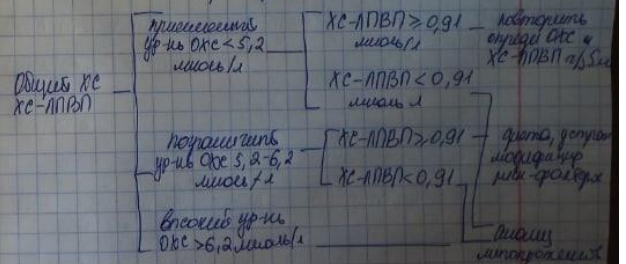 Общий ХС
ХС-ЛПВП
приемлемый
ур-нь ОХС < 5,2
ммоль/л
ХС-ЛПВП ≥ 0,91
ммоль/л
повторить
ОХС и
ХС-ЛПВП
ХС-ЛПВП < 0,91
ммоль л
погранич
ур-нь ОХС 5,2-6,2
ммоль/л
ХС-ЛПВП ≥ 0,91
ХС-ЛПВП < 0,91
диета, устран
модифицир
высокий ур-нь
ОХС > 6,2 ммоль/л
анализ